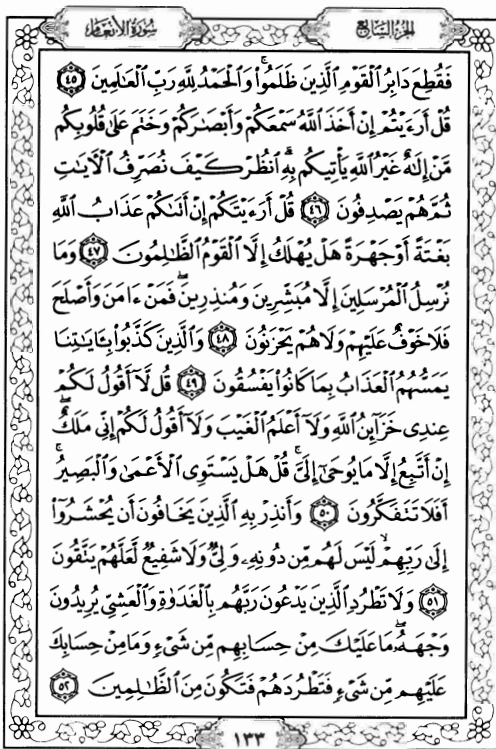 سُورَةُ الأَنْعَامِ
الجُزْءُ السَّابِعُ
فَقُطِعَ دَابِرُ ٱلْقَوْمِ ٱلَّذِينَ ظَلَمُوا۟ ۚ وَٱلْحَمْدُ لِلَّهِ رَبِّ ٱلْعَٰلَمِينَ ٤٥
قُلْ أَرَءَيْتُمْ إِنْ أَخَذَ ٱللَّهُ سَمْعَكُمْ وَأَبْصَٰرَكُمْ وَخَتَمَ عَلَىٰ قُلُوبِكُم
مَّنْ إِلَٰهٌ غَيْرُ ٱللَّهِ يَأْتِيكُم بِهِ ۗ ٱنظُرْ كَيْفَ نُصَرِّفُ ٱلْءَايَٰتِ
ثُمَّ هُمْ يَصْدِفُونَ ٤٦ قُلْ أَرَءَيْتَكُمْ إِنْ أَتَىٰكُمْ عَذَابُ ٱللَّهِ
بَغْتَةً أَوْ جَهْرَةً هَلْ يُهْلَكُ إِلَّا ٱلْقَوْمُ ٱلظَّٰلِمُونَ ٤٧ وَمَا
نُرْسِلُ ٱلْمُرْسَلِينَ إِلَّا مُبَشِّرِينَ وَمُنذِرِينَ ۖ فَمَنْ ءَامَنَ وَأَصْلَحَ
فَلَا خَوْفٌ عَلَيْهِمْ وَلَا هُمْ يَحْزَنُونَ ٤٨ وَٱلَّذِينَ كَذَّبُوا۟ بِـَٔايَٰتِنَا
يَمَسُّهُمُ ٱلْعَذَابُ بِمَا كَانُوا۟ يَفْسُقُونَ ٤٩ قُل لَّآ أَقُولُ لَكُمْ
عِندِى خَزَآئِنُ ٱللَّهِ وَلَآ أَعْلَمُ ٱلْغَيْبَ وَلَآ أَقُولُ لَكُمْ إِنِّى مَلَكٌ ۖ
إِنْ أَتَّبِعُ إِلَّا مَا يُوحَىٰٓ إِلَىَّ ۚ قُلْ هَلْ يَسْتَوِى ٱلْأَعْمَىٰ وَٱلْبَصِيرُ ۚ
أَفَلَا تَتَفَكَّرُونَ ٥٠ وَأَنذِرْ بِهِ ٱلَّذِينَ يَخَافُونَ أَن يُحْشَرُوٓا۟
إِلَىٰ رَبِّهِمْ ۙ لَيْسَ لَهُم مِّن دُونِهِۦ وَلِىٌّ وَلَا شَفِيعٌ لَّعَلَّهُمْ يَتَّقُونَ
٥١ وَلَا تَطْرُدِ ٱلَّذِينَ يَدْعُونَ رَبَّهُم بِٱلْغَدَوٰةِ وَٱلْعَشِىِّ يُرِيدُونَ
وَجْهَهُۥ ۖ مَا عَلَيْكَ مِنْ حِسَابِهِم مِّن شَىْءٍ وَمَا مِنْ حِسَابِكَ
عَلَيْهِم مِّن شَىْءٍ فَتَطْرُدَهُمْ فَتَكُونَ مِنَ ٱلظَّٰلِمِينَ ٥٢
١٣٣